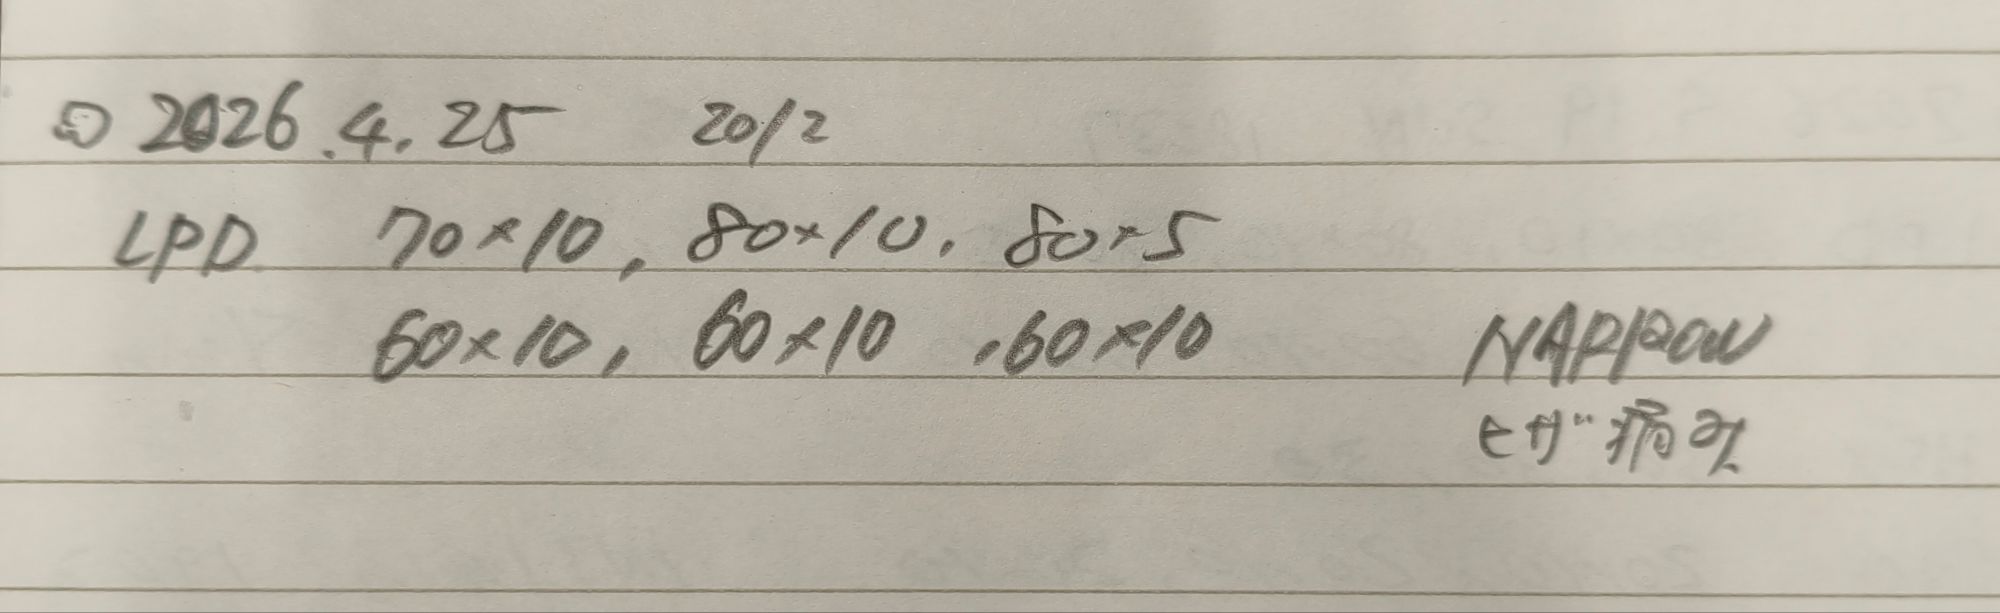 2026.4.25 20/2
LPD 70×10, 80×10, 80×5
60×10, 60×10, 60×10 NARROW
ヒザ痛み